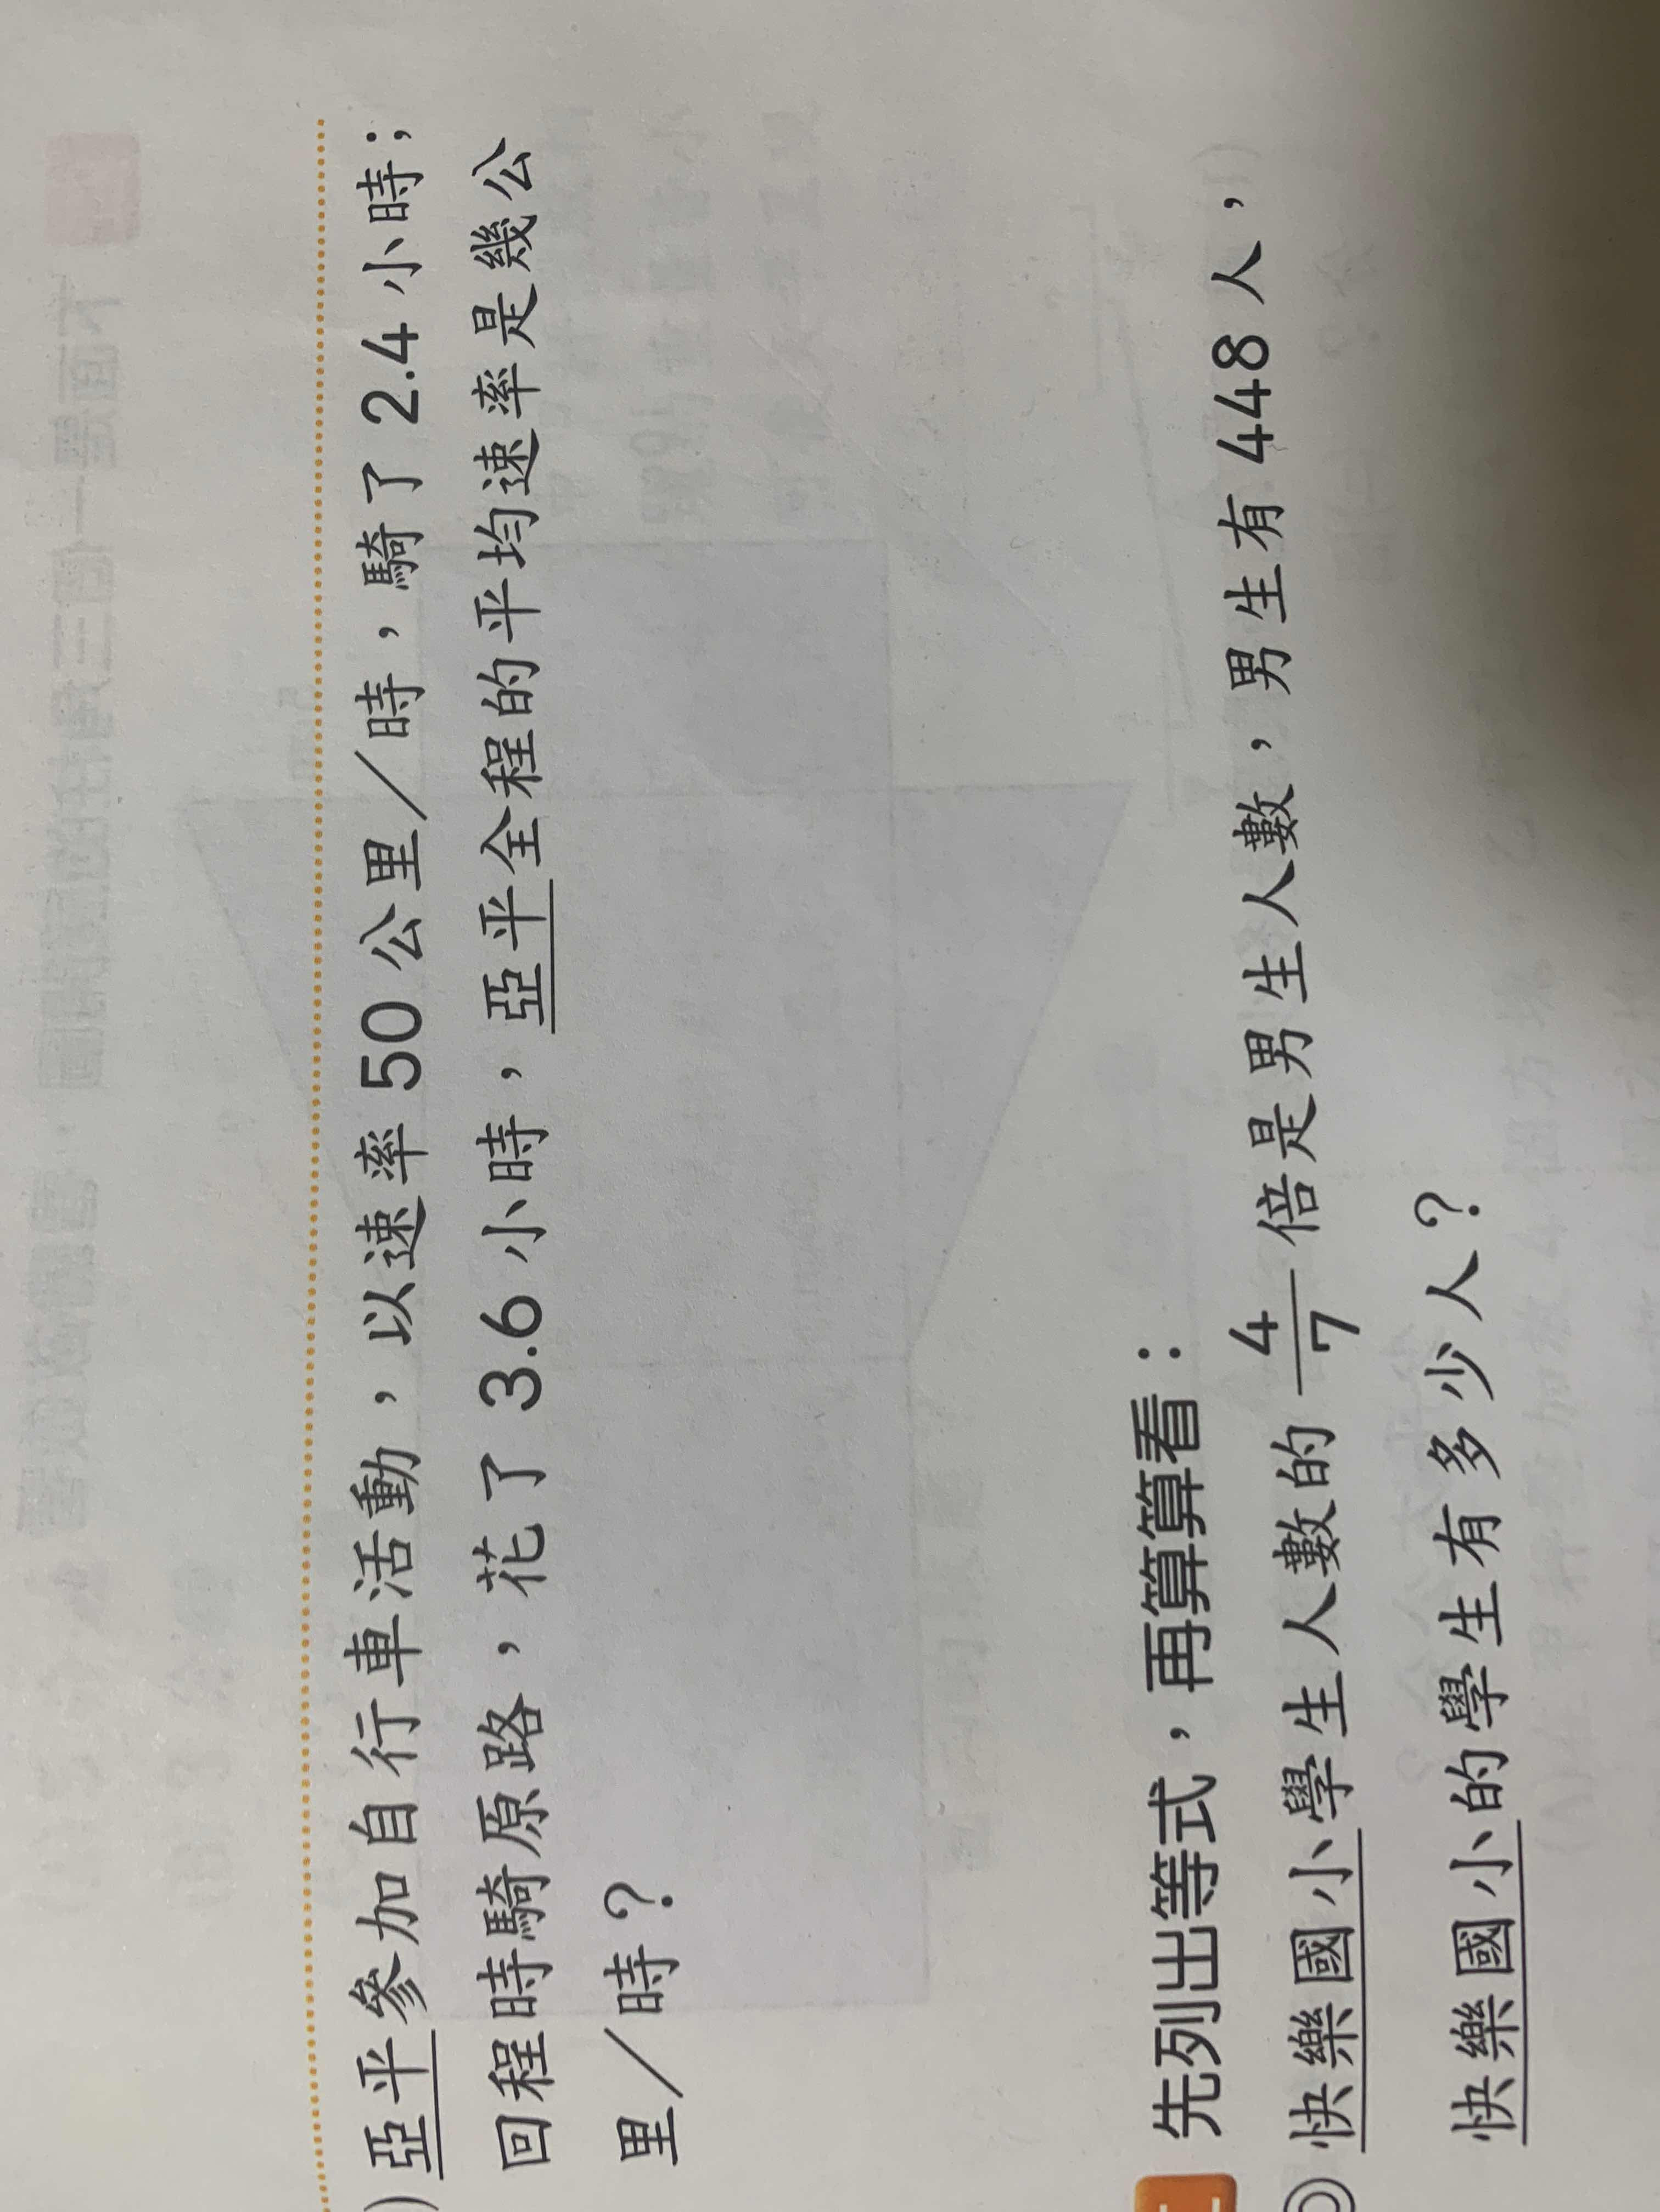 亞平參加自行車活動，以速率50公里／時，騎了2.4小時；
回程時騎原路，花了3.6小時，亞平全程的平均速率是幾公
里／時？
先列出等式，再算算看：
快樂國小學生人數的4/7倍是男生人數，男生有448人，
快樂國小的學生有多少人？